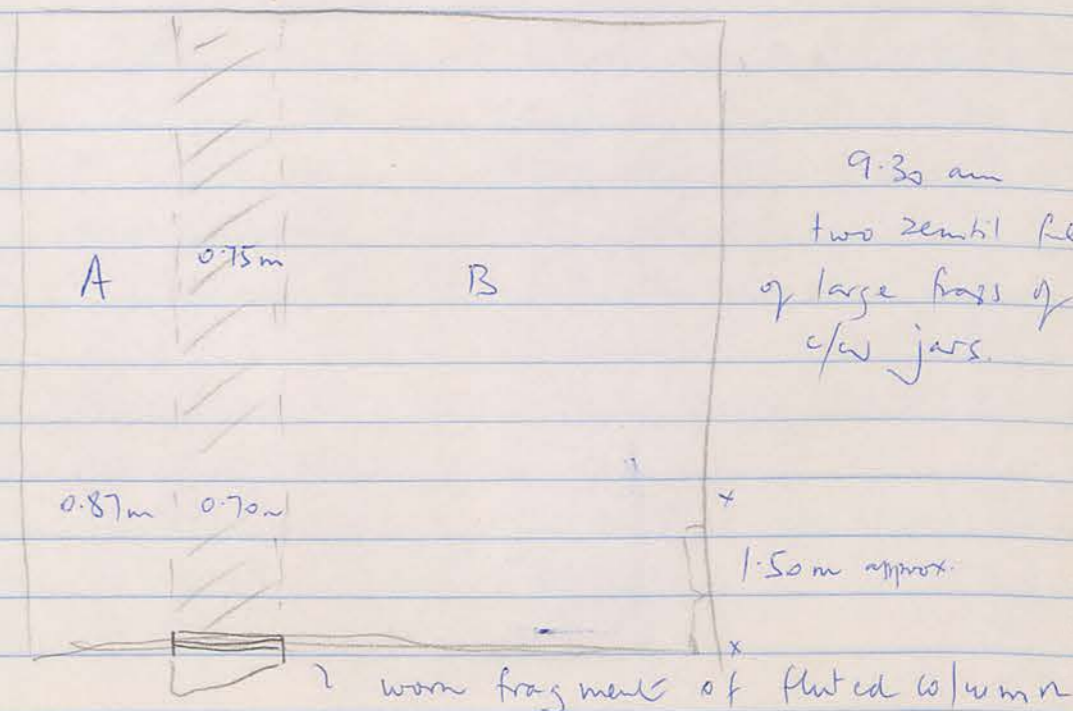 9.30 am
two zembil
of large frags of
c/w jars.
A 0.75m B
0.87m 0.70m
x
1.50m approx.
x
? worn fragment of fluted column